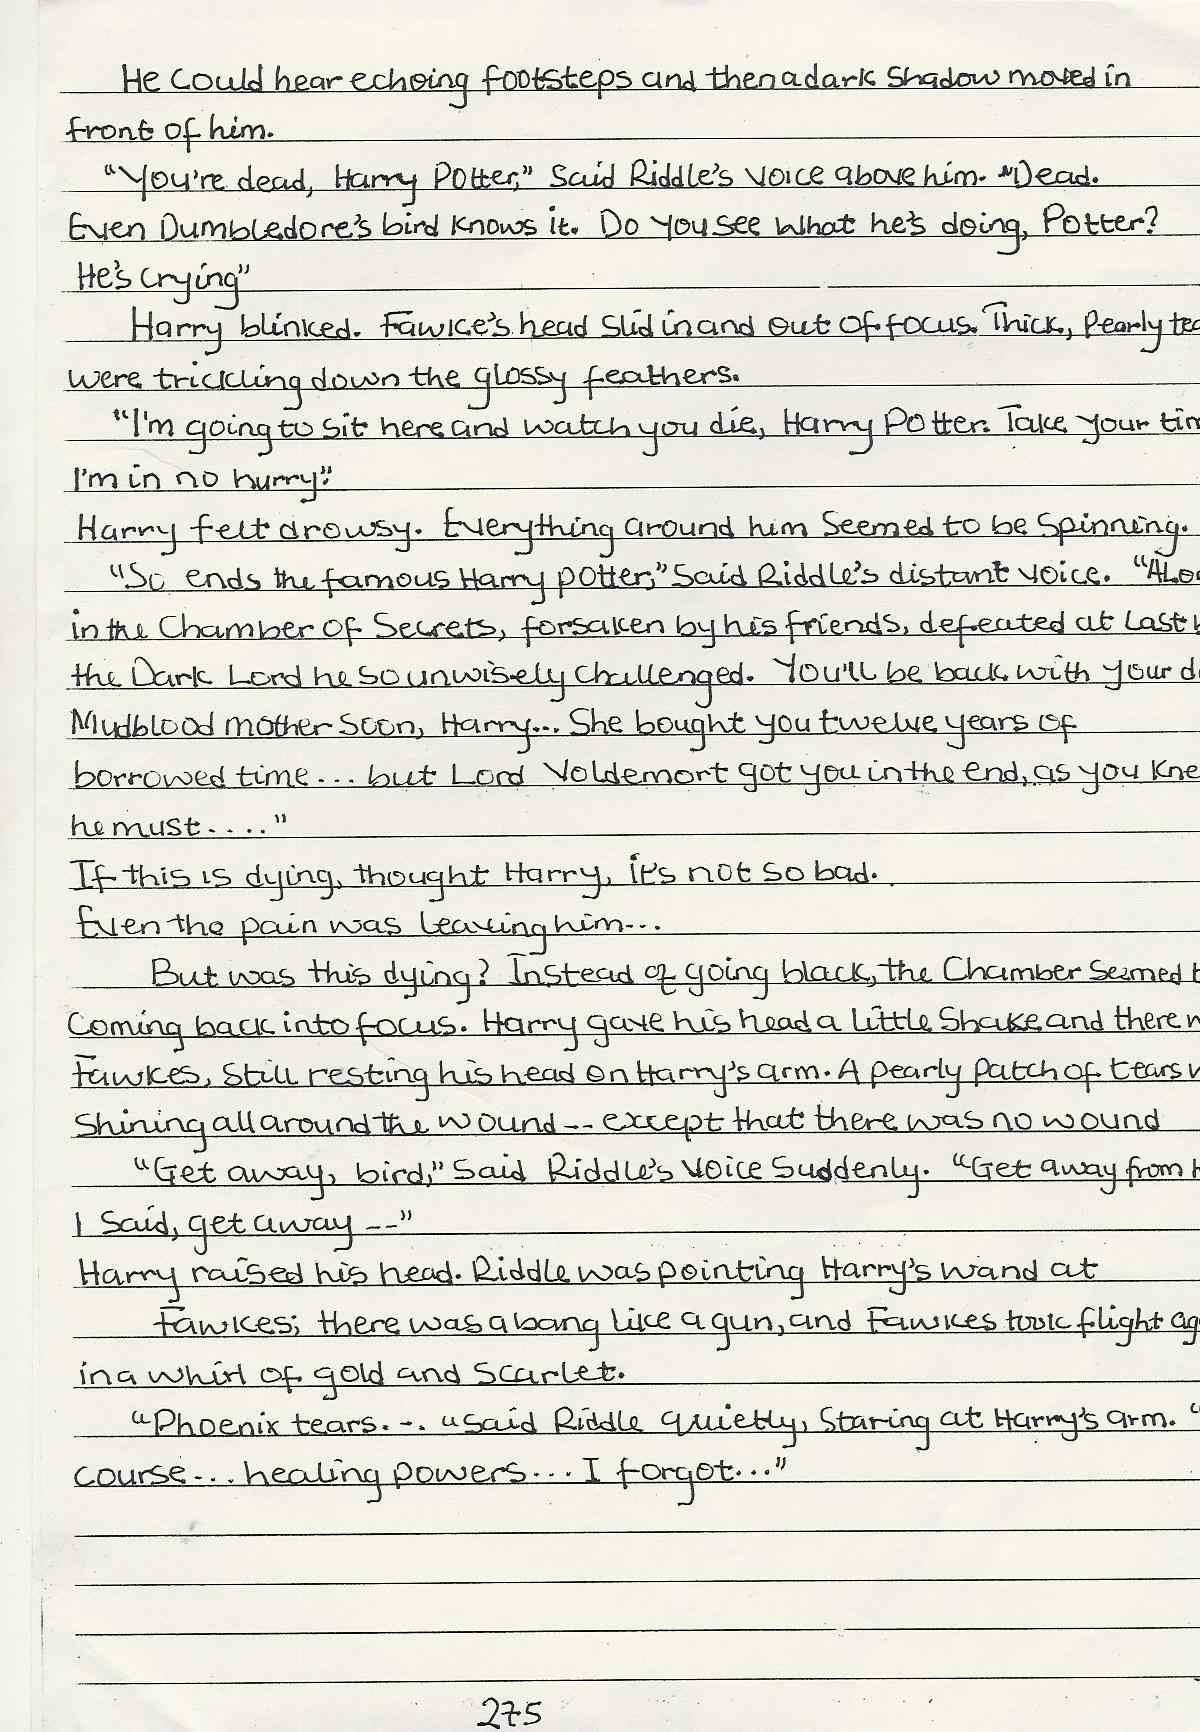 He could hear echoing footsteps and then a dark shadow moved in
front of him.
"You're dead, Harry Potter," said Riddle's voice above him. "Dead.
Even Dumbledore's bird knows it. Do you see what he's doing, Potter?
He's crying"
Harry blinked. Fawke's head slid in and out of focus. Thick, pearly tea
were trickling down the glossy feathers.
"I'm going to sit here and watch you die, Harry Potter. Take your tim
I'm in no hurry."
Harry felt drowsy. Everything around him seemed to be spinning.
"So ends the famous Harry potter," said Riddle's distant voice. "Alo
in the Chamber of Secrets, forsaken by his friends, defeated at last b
the Dark Lord he so unwisely challenged. You'll be back with your d
Mudblood mother soon, Harry... She bought you twelve years of
borrowed time... but Lord Voldemort got you in the end, as you kne
he must...."
If this is dying, thought Harry, it's not so bad.
Even the pain was leaving him...
But was this dying? Instead of going black, the Chamber seemed t
coming back into focus. Harry gave his head a little shake and there w
Fawkes, still resting his head on Harry's arm. A pearly patch of tears w
shining all around the wound -- except that there was no wound
"Get away, bird," said Riddle's voice suddenly. "Get away from h
I said, get away --"
Harry raised his head. Riddle was pointing Harry's wand at
Fawkes; there was a bang like a gun, and Fawkes took flight ag
in a whirl of gold and scarlet.
"Phoenix tears... "said Riddle quietly, staring at Harry's arm. "
course... healing powers... I forgot..."
275